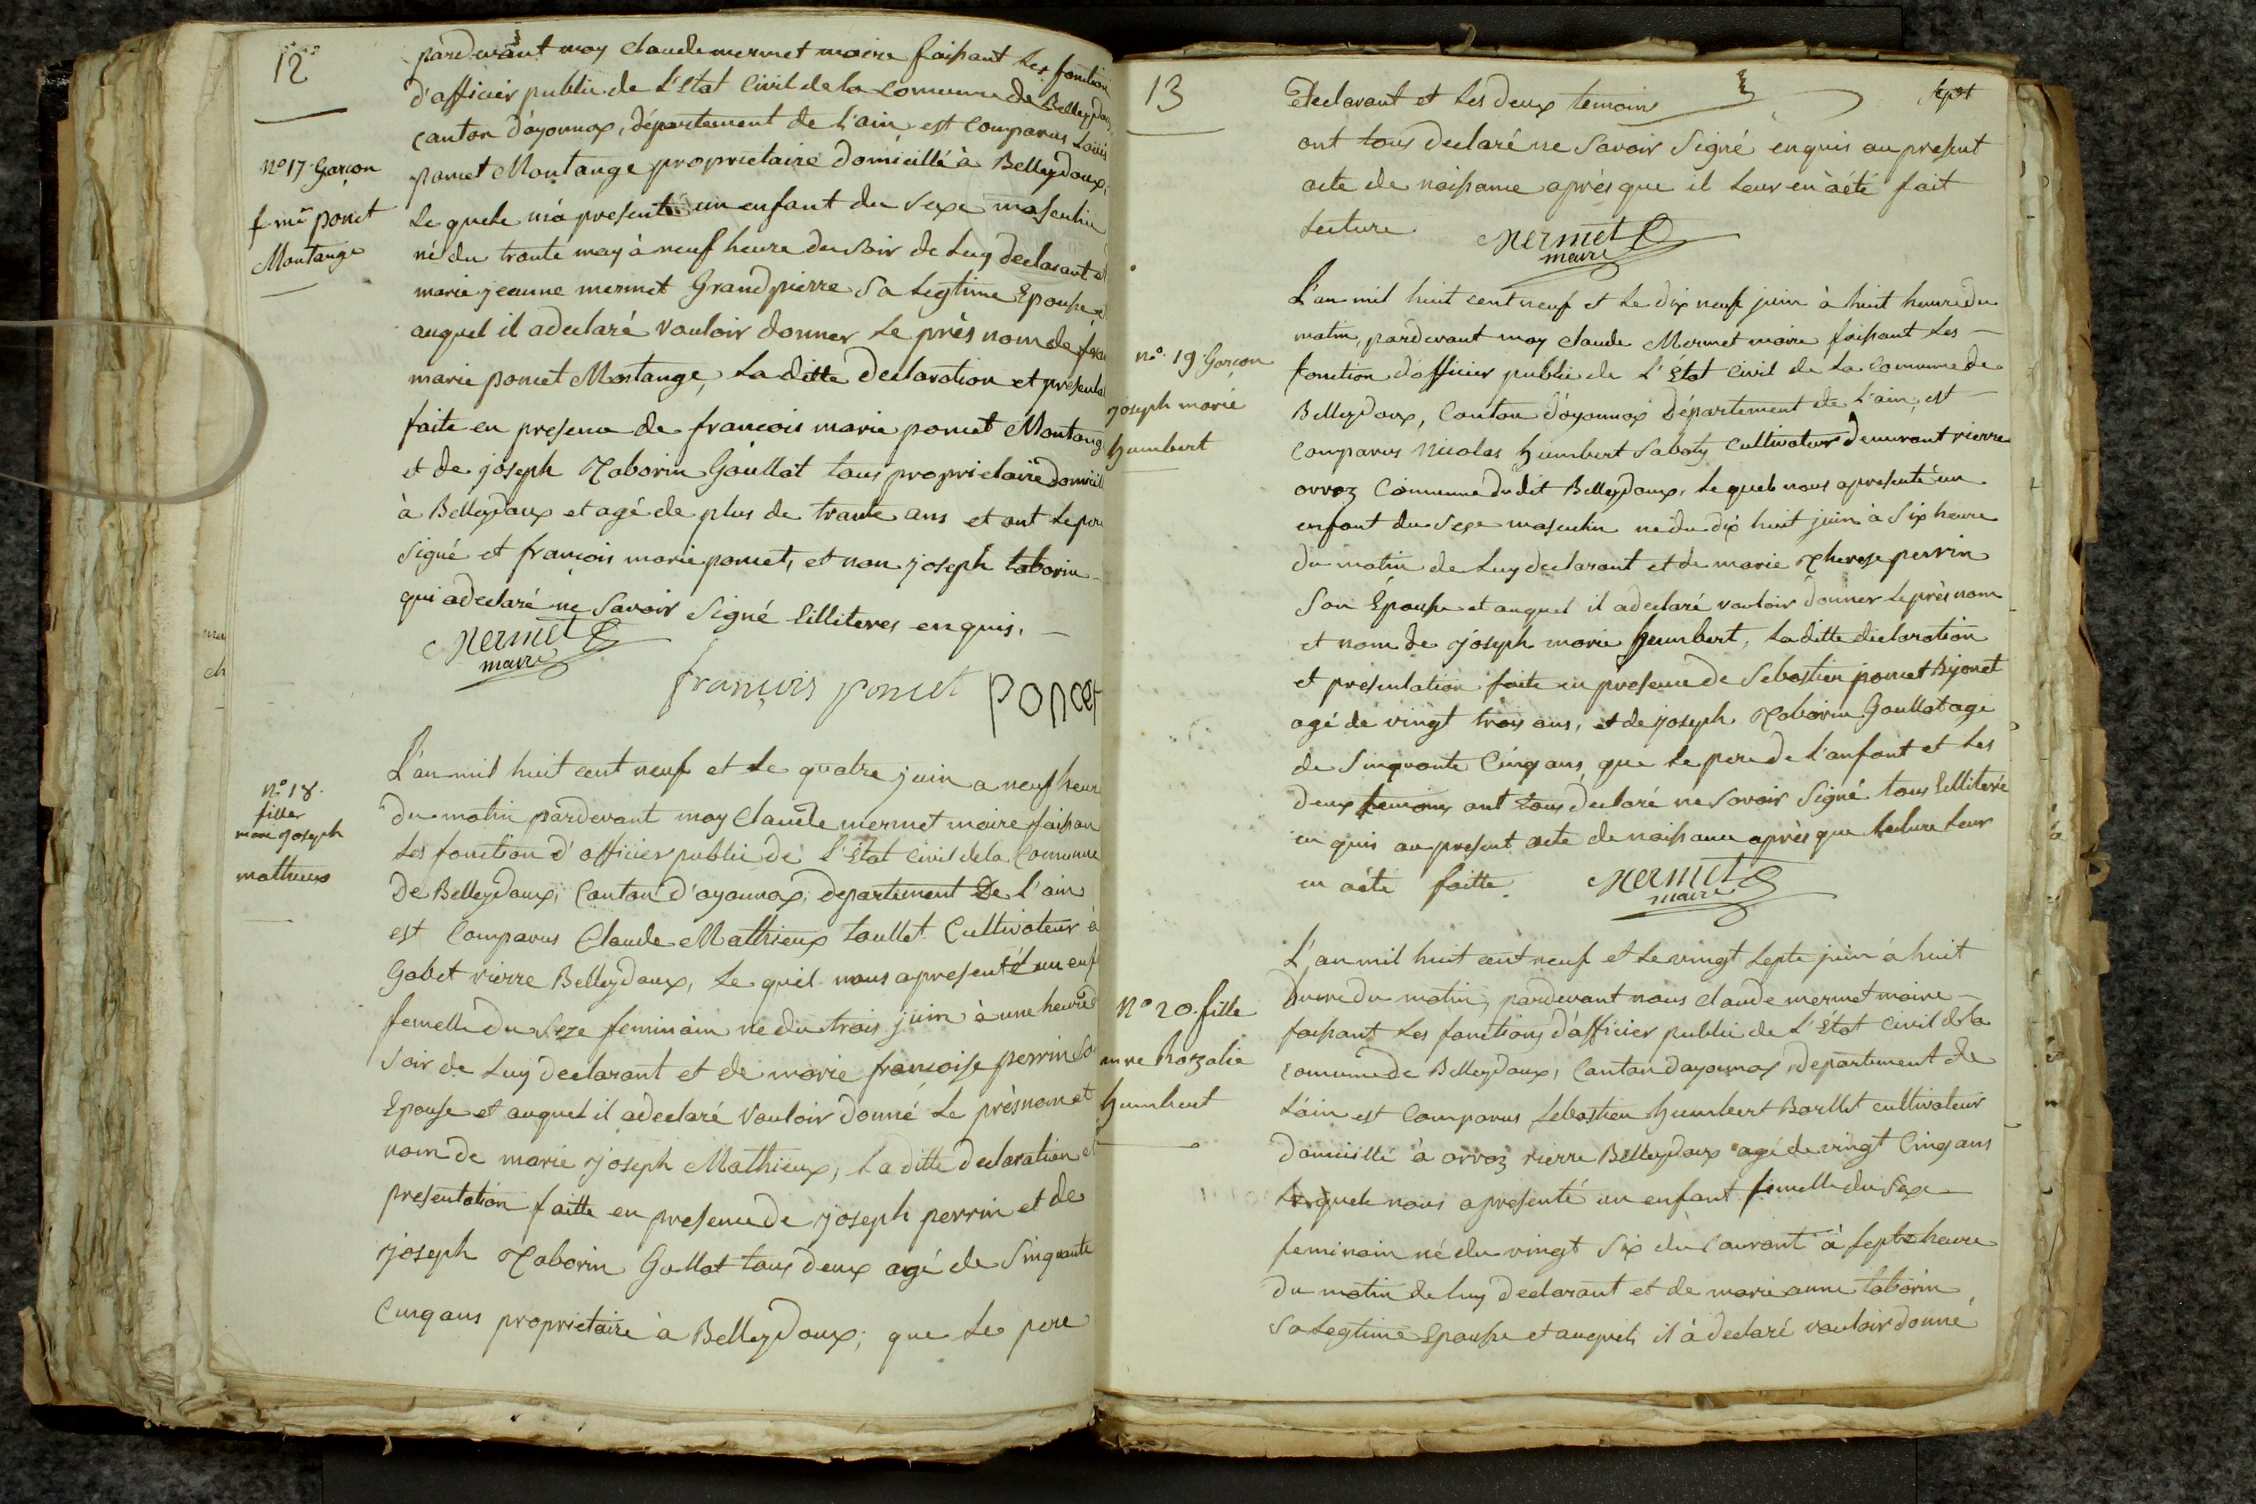 12
pardevant moy claude mermet maire faisant les fonction
d'officier public de l'état Civil de la Commune de Belleydoux
Canton d'oyonnax, département de l'ain est Comparus Louis
poncet Montange proprietaire domicillé à Belleydoux,
le quele m'a presenté un enfant du sexe masculin
né du trante may à neuf heure du soir de luy declarant et
marie jeanne mermet Grandpierre sa legtime Epouse et
auquel il a declaré vouloir donner le près nom de
marie poncet Montange, la ditte declaration et presenta
faite en presence de francois marie poncet Montang
et de joseph Taborin Goullat tous proprietaire domicill
à Belleydoux et agé de plus de trante ans et ont le per
signé et francois marie poncet, et non joseph taborin
qui a declaré ne savoir signé lilliteres enquis.
Mermet
maire
françois poncet poncet
N° 17 Garçon
f. m.ie poncet
Montange
N° 18.
filles
marie joseph
mathieux
L'an mil huit cent neuf et le quatre juin a neuf heur
du matin pardevant moy Claude mermet maire faisan
les fonction d'officier public de l'état civil de la Commune
de Belleydoux, Canton d'oyonnax, departement De l'ain
est Comparus Claude Mathieux toullet Cultivateur à
Gobet rierre Belleydoux, le quel nous a presenté un enf
femelle du seze feminain né du trois juin à une heure d
soir de luy declarant et de marie françoise perrin son
Epouse et auquel il a declaré vouloir donné le près nom et
nom de marie joseph Mathieux, la ditte declaration et
presentation faitte en presence de joseph perrin et de
joseph Taborin Gollat tous deux agé de sinquante
Cinq ans proprietaire à Belleydoux; que le pere
13
sept
Declarant et les deux temoin
ont tous declaré ne savoir signé enquis au present
acte de naissance après que il leur en a été fait
lecture.
Mermet
maire
n°. 19 Garçon
joseph marie
humbert
L'an mil huit cent neuf et le dix neuf juin à huit heure du
matin, pardevant moy claude Mermet maire faisant les
fonction d'officier public de l'État Civil de la Commune de
Belleydoux, Canton d'oyonnax Département de l'ain, est
Comparus Nicolas humbert Sabaty Cultivateur demeurant rierre
orvoz Commune dudit Belleydoux, le quele nous a presenté un
enfant du sexe masculin né du dix huit juin à six heure
du matin de luy declarant et de marie Therese perrin
son Épouse et auquel il a declaré vouloir donner le près nom
et nom de joseph marie humbert, la ditte declaration
et presentation faite en presence de Sebastien poncet Bijonet
agé de vingt trois ans, et de joseph Taborin Goullat agé
de sinquante Cinq ans, que le pere de l'anfant et les
deux temoins ont tous declaré ne savoir signé tous lilliterés
en quis au present acte de naissance après que lecture leur
en a été faitte.
Mermet
maire
N° 20. fille
anne Rozalie
humbert
L'an mil huit cent neuf et le vingt septe juin à huit
heure du matin, pardevant nous claude mermet maire
faisant les fonctions d'officier public de l'État Civil de la
comune de Belleydoux, Canton d'oyonnax, departement de
l'ain est Comparus Sebastien humbert Barllet cultivateur
domicillé à orvoz rierre Belleydoux agé de vingt Cinq ans
lequele nous a presenté un enfant femelle du sexe
feminain né du vingt six du Courant à septe heure
du matin de luy declarant et de marie anne taborin
sa legtime Epouse et auquel, il à declaré vouloir donné